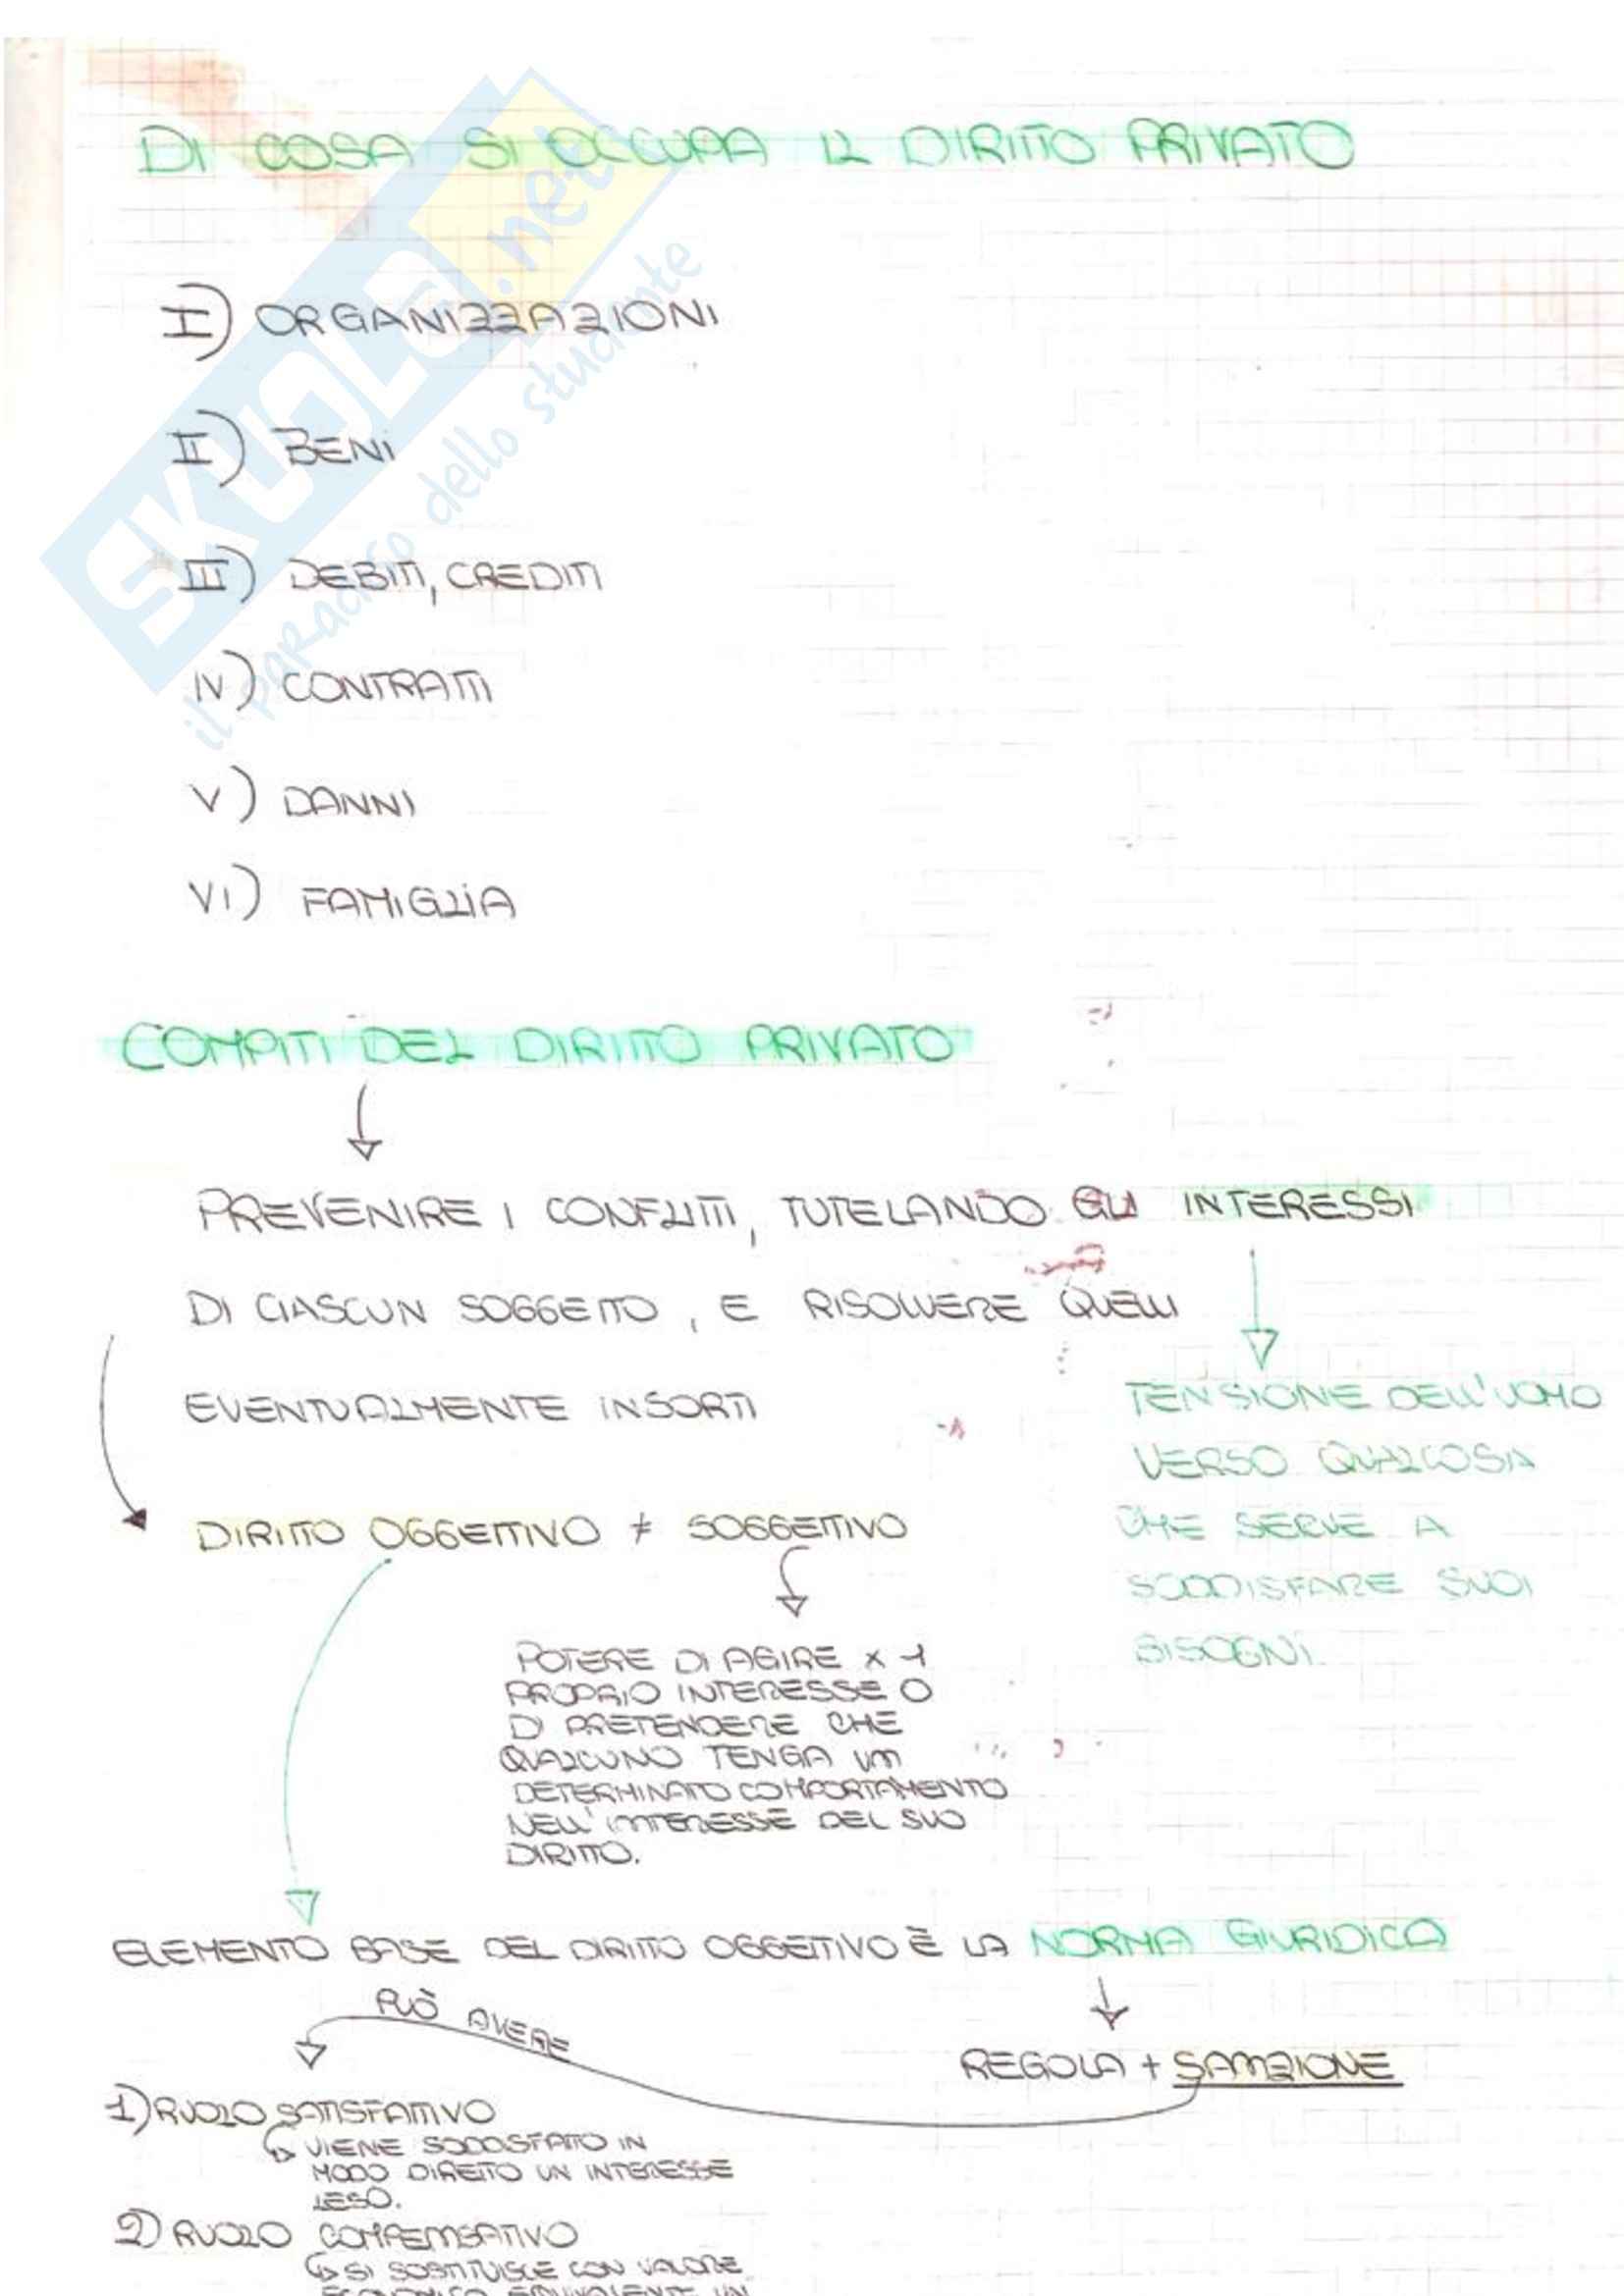 DI COSA SI OCCUPA IL DIRITTO PRIVATO
SKUOLA.net
il paradiso dello studente
I) ORGANIZZAZIONI
II) BENI
III) DEBITI, CREDITI
IV) CONTRATTI
V) DANNI
VI) FAMIGLIA
COMPITI DEL DIRITTO PRIVATO
PREVENIRE I CONFLITTI, TUTELANDO GLI INTERESSI
DI CIASCUN SOGGETTO, E RISOLVERE QUELLI
EVENTUALMENTE INSORTI
TENSIONE DELL'UOMO
VERSO QUALCOSA
CHE SERVE A
SODDISFARE SUOI
BISOGNI.
DIRITTO OGGETTIVO ≠ SOGGETTIVO
POTERE DI AGIRE X 1
PROPRIO INTERESSE O
DI PRETENDERE CHE
QUALCUNO TENGA UN
DETERMINATO COMPORTAMENTO
NELL'INTERESSE DEL SUO
DIRITTO.
ELEMENTO BASE DEL DIRITTO OGGETTIVO È LA NORMA GIURIDICA
PUÒ AVERE
REGOLA + SANZIONE
1) RUOLO SATISFATTIVO
VIENE SODDISFATTO IN
MODO DIRETTO UN INTERESSE
LESO.
2) RUOLO COMPENSATIVO
SI SOSTITUISCE CON VALORE
ECONOMICO EQUIVALENTE UN